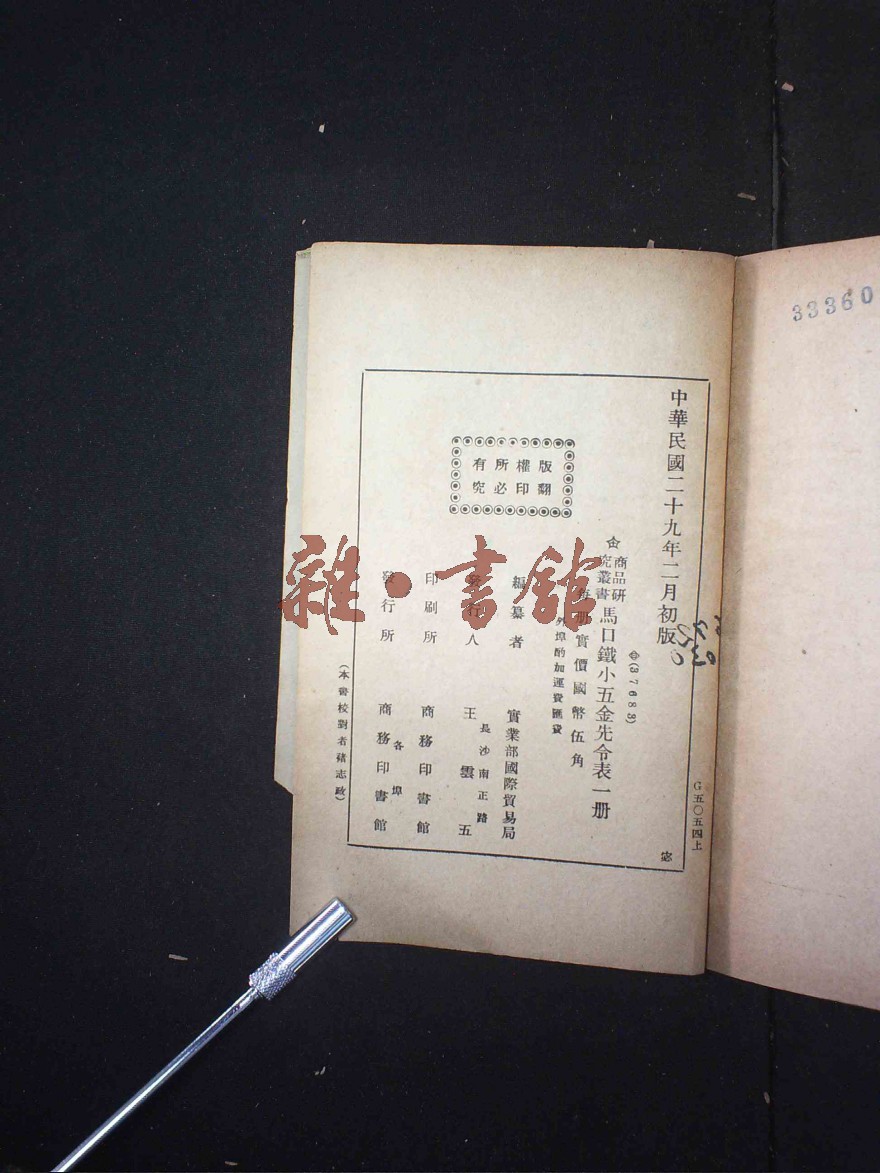 33360
中華民國二十九年二月初版
(37683)
商品研
究叢書
馬口鐵小五金先令表一册
每册實價國幣伍角
外埠酌加運費匯費
版權所有
翻印必究
編纂者 實業部國際貿易局
發行人 王雲五
長沙南正路
印刷所 商務印書館
發行所 商務印書館
各埠
(本書校對者 志政)
G五〇五四上
雜·書館